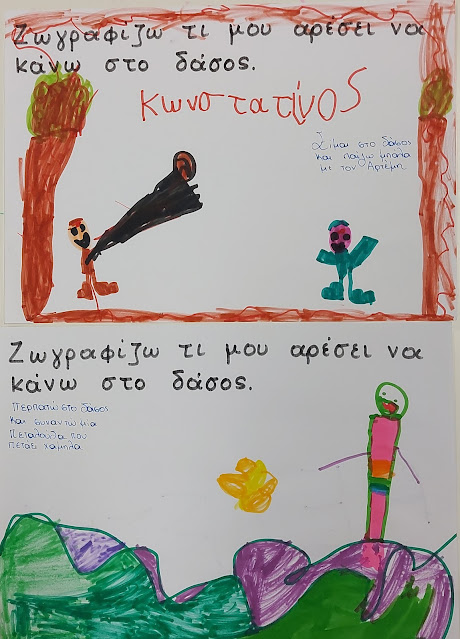 Ζωγραφίζω τι μου αρέσει να
κάνω στο δάσος.
Κωνστατίνος
Είμαι στο δάσος
και παίζω μπάλα
με τον Αρτέμη.
Ζωγραφίζω τι μου αρέσει να
κάνω στο δάσος.
Περπατώ στο δάσος
και συναντώ μια
πεταλούδα που
πετάει χαμηλά